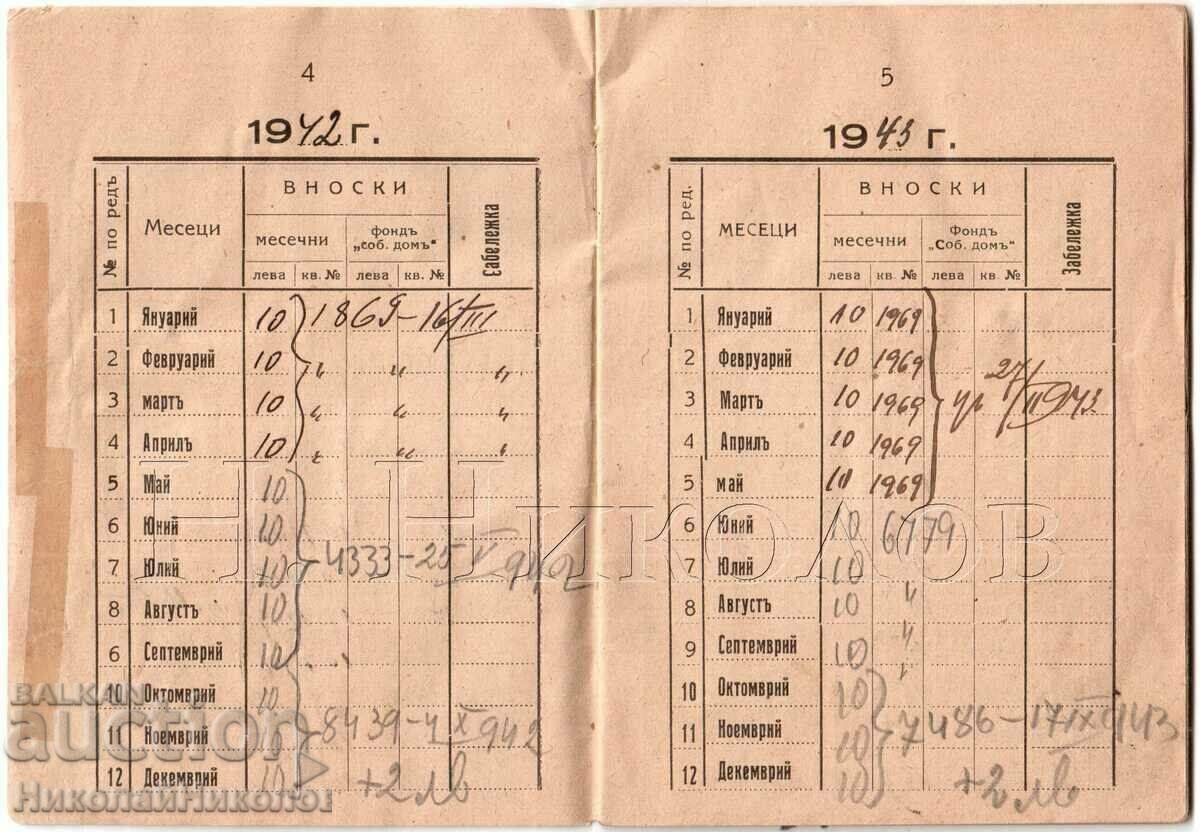 4
1942 г.
№ по редъ
Месеци
ВНОСКИ
месечни
фондъ „соб. домъ“
Сабележка
лева кв. № лева кв. №
1 Януарий 10 1869 – 16/III
2 Февруарий 10 „ „ „
3 мартъ 10 „ „ „
4 Априлъ 10 „ „ „
5 Май 10
6 Юний 10
7 Юлий 10 4333 – 25 V 942
8 Августъ 10
6 Септемврий 10
10 Октомврий 10
11 Ноемврий 10 8439 – 4 X 942
12 Декемврий 10 +2 лв
5
1943 г.
№ по ред.
МЕСЕЦИ
ВНОСКИ
месечни
Фондъ „Соб. домъ“
Забележка
лева кв. № лева кв. №
1 Януарий 10 1969
2 Февруарий 10 1969
3 Мартъ 10 1969 27/II 943
4 Априлъ 10 1969
5 май 10 1969
6 Юний 10 6779
7 Юлий 10 „
8 Августъ 10 „
9 Септемврий 10 „
10 Октомврий 10
11 Ноемврий 10 7486 – 17 IX 943
12 Декемврий 10 +2 лв
Н. Николов
BALKAN
auction
НиколайНиколов